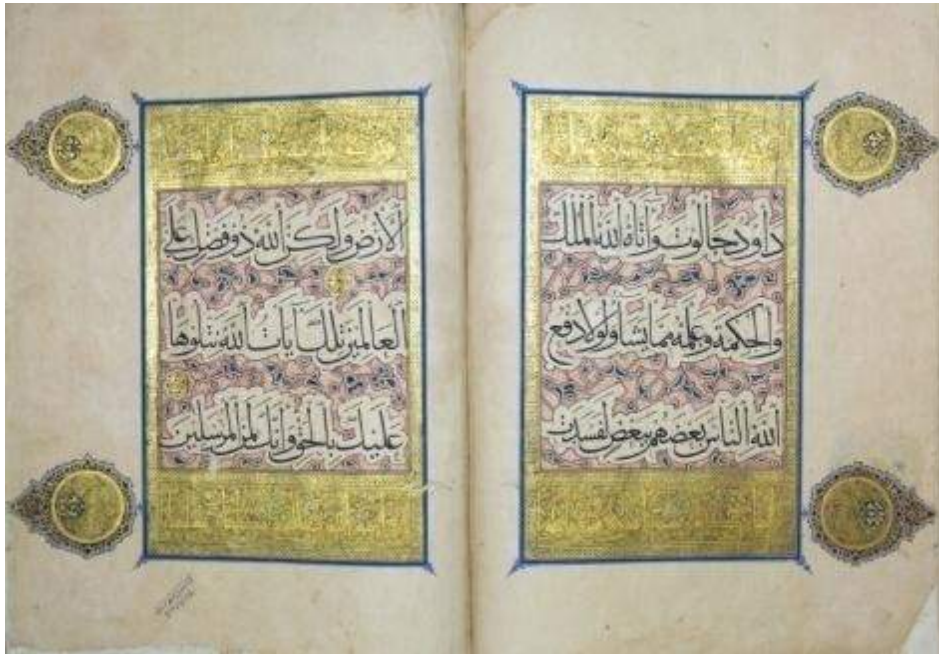 داود جالوت وآتاه الله الملك
والحكمة وعلمه مما يشا ولولا دفع
الله الناس بعضهم ببعض لفسدت
الارض ولكن الله ذو فضل على
العالمين تلك آيات الله نتلوها
عليك بالحق وانك لمن المرسلين